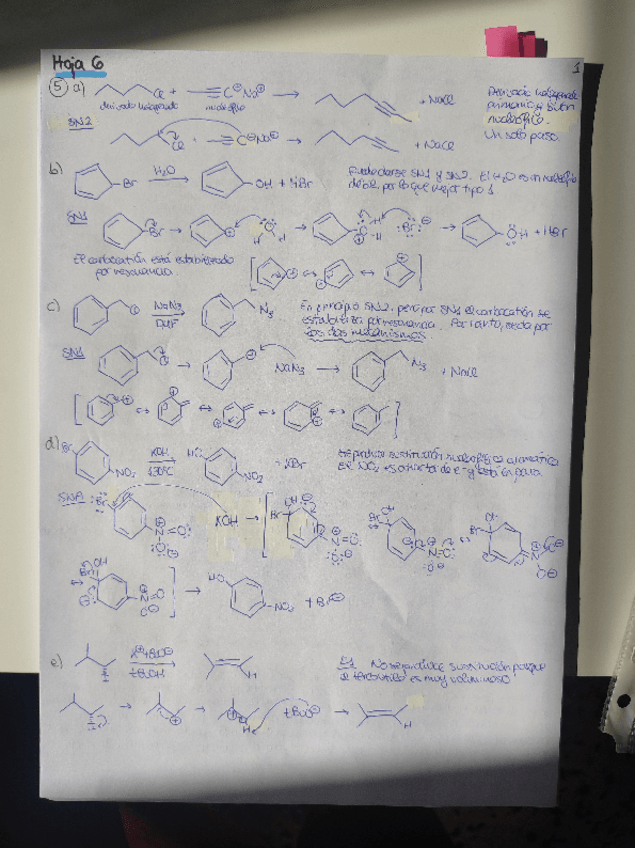 Hoja 6
1
5 a) Cl + C⊖ Na⊕ → + NaCl
derivado halogenado nucleófilo
Derivado halogenado
primario y buen
nucleófilo.
Un solo paso.
SN2
Cl + C⊖Na⊕ → + NaCl
b) Br H2O → OH + HBr
Puede darse SN1 y SN2. El H2O es un nucleófilo
débil, por lo que mejor tipo 1
SN1
Br → → → OH + HBr
El carbocatión está estabilizado
por resonancia.
c) Cl NaN3 DMF N3
En principio SN2, pero por SN1 el carbocatión se
estabiliza por resonancia. Por tanto, se da por
los dos mecanismos.
SN1
Cl → NaN3 → N3 + NaCl
d) Br NO2 KOH 130ºC HO NO2 + KBr
Se produce sustitución nucleófila aromática
El NO2 es atractor de e- y está en para
SNA
KOH →
→ HO NO2 + Br⊖
e) K⊕tBuO⊖ tBuOH H
E1 No se produce sustitución porque
el terbutóxido es muy voluminoso
→ → tBuO⊖ → H